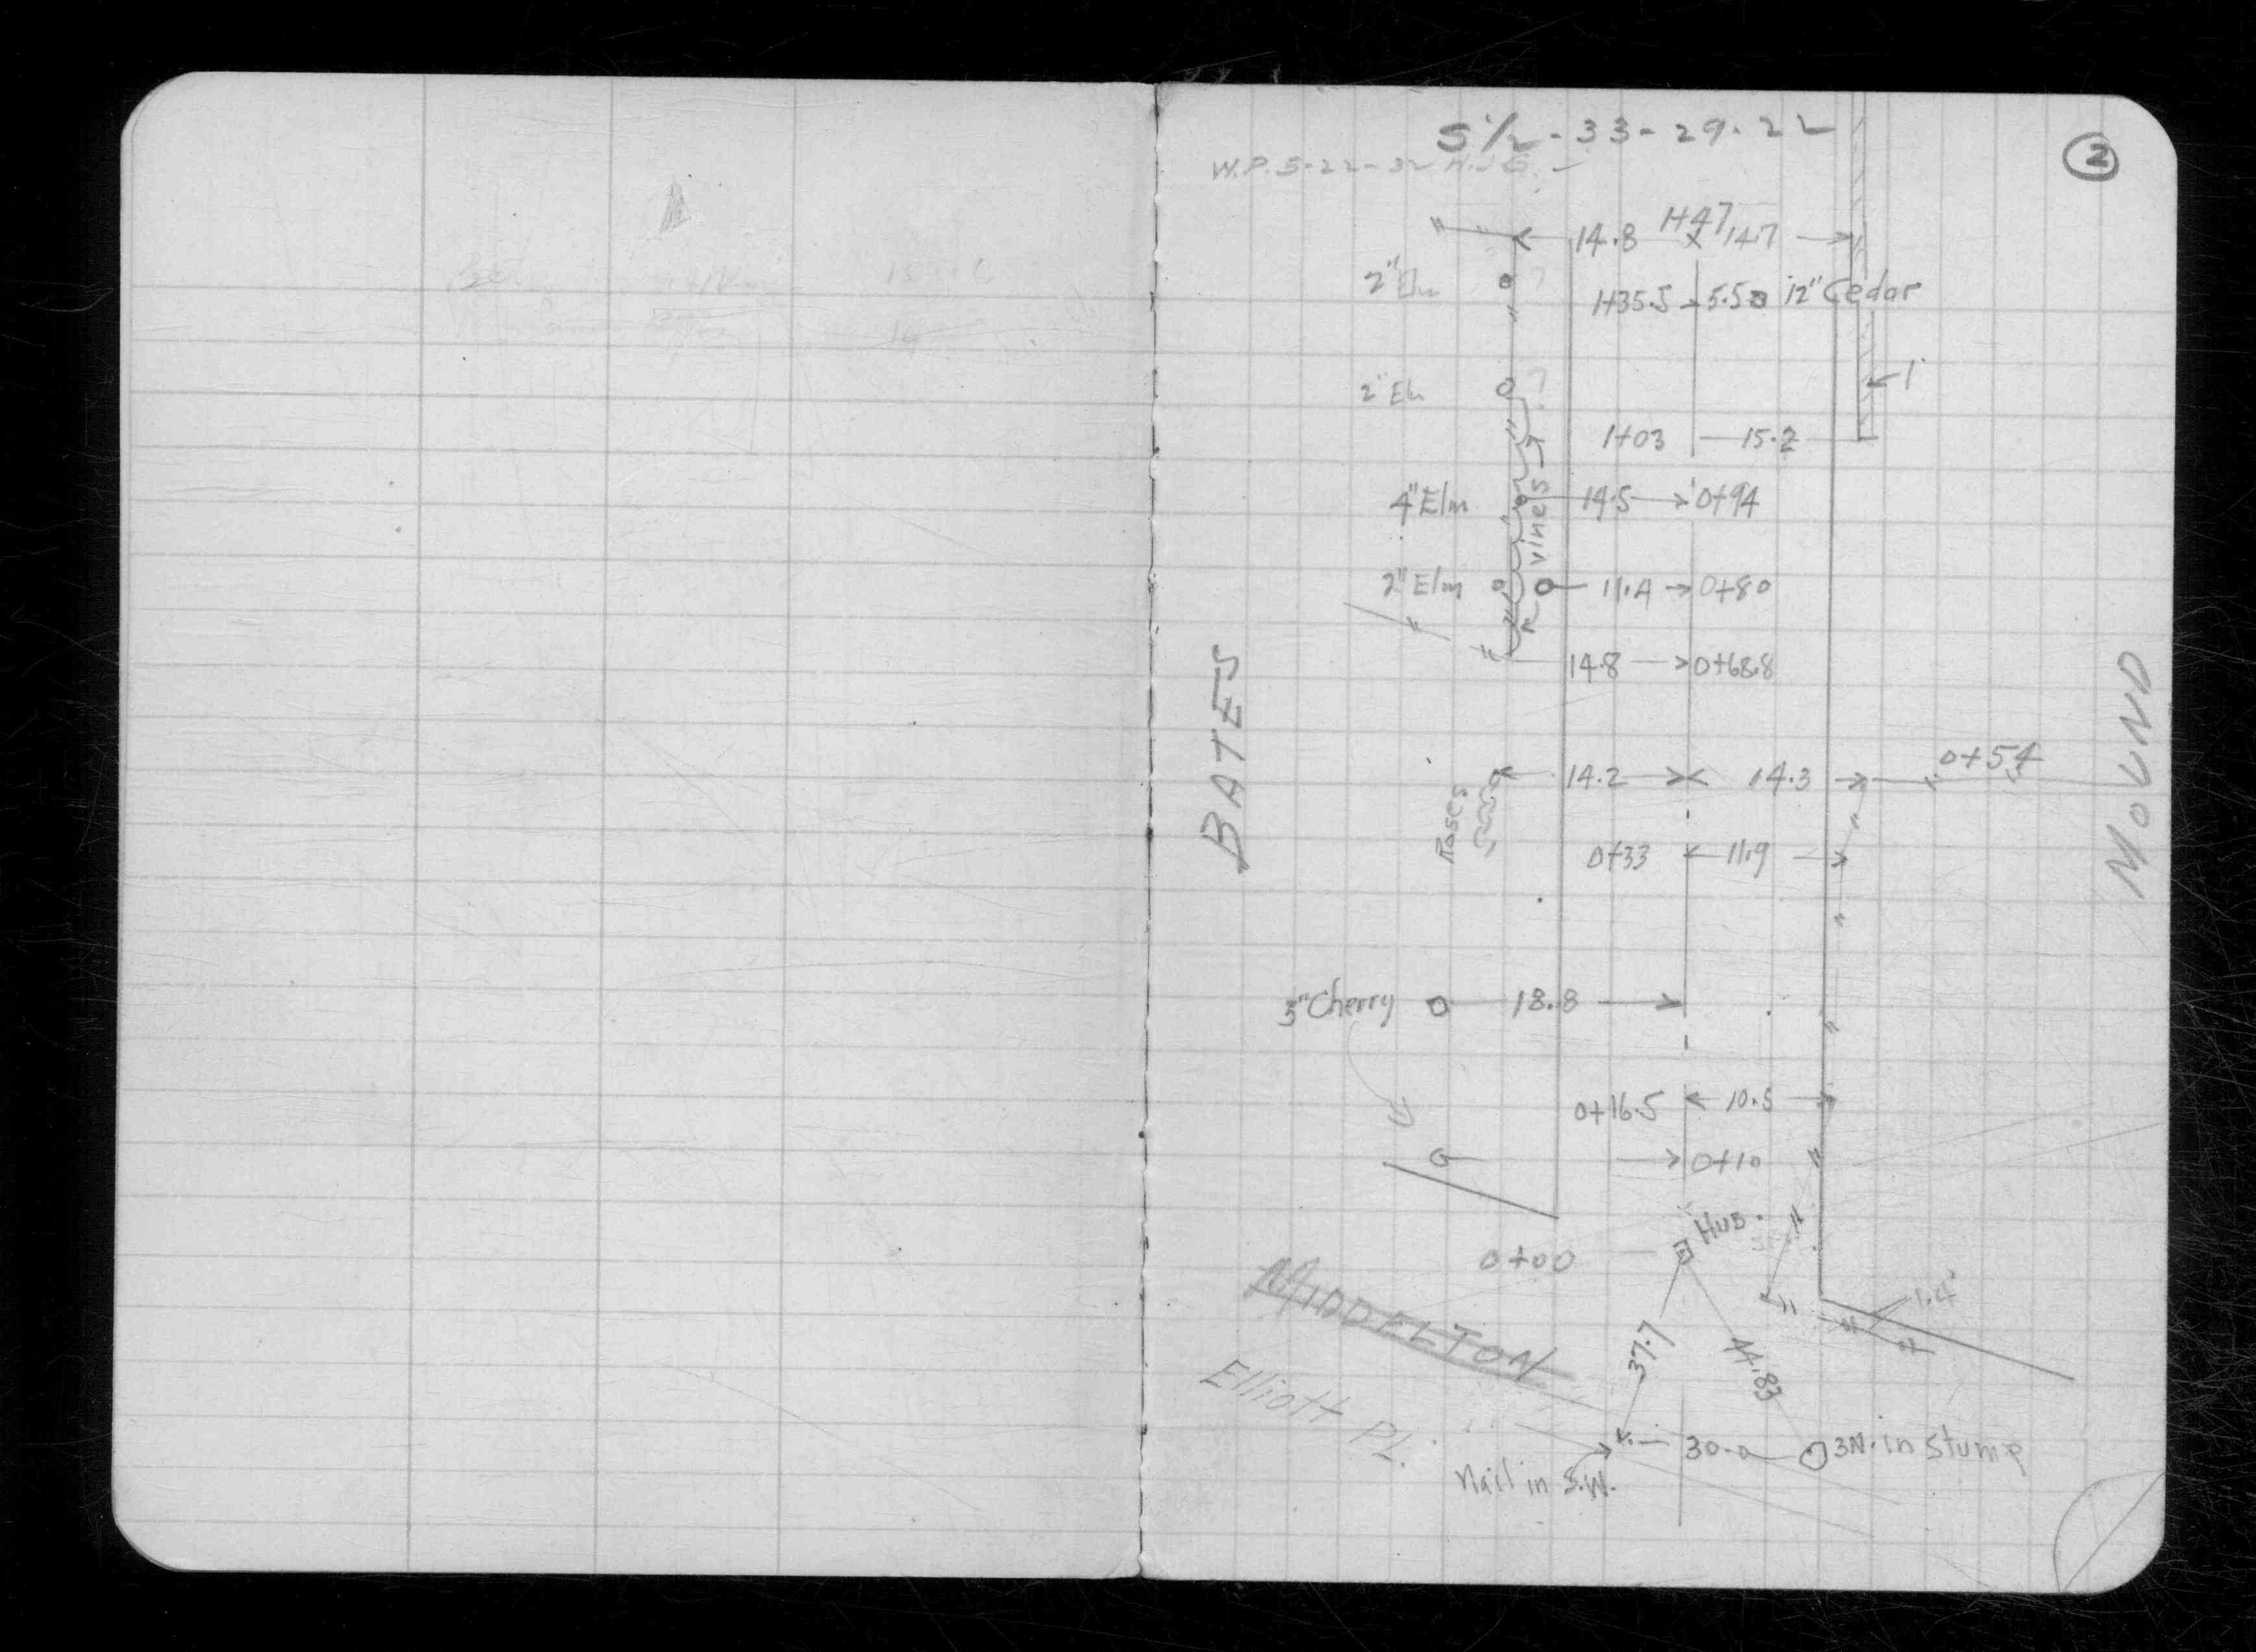 S 1/2 - 33 - 29 - 22
2
W.P. 5-22-32 H.J.G.
14.8 1+47 14.7
2" Elm
1+35.5 5.5 12" Cedar
1'
2" Elm
1+03 15.2
4" Elm 14.5 0+94
vines
2" Elm 11.4 0+80
14.8 0+68.8
BATES
MOUND
14.2 14.3 0+54
Roses
0+33 11.9
3" Cherry 18.8
0+16.5 10.5
0+10
HUB.
0+00
MIDDELTON
1.4'
37.7 44.83
Elliott PL.
30.0 3N. in Stump
Nail in S.W.